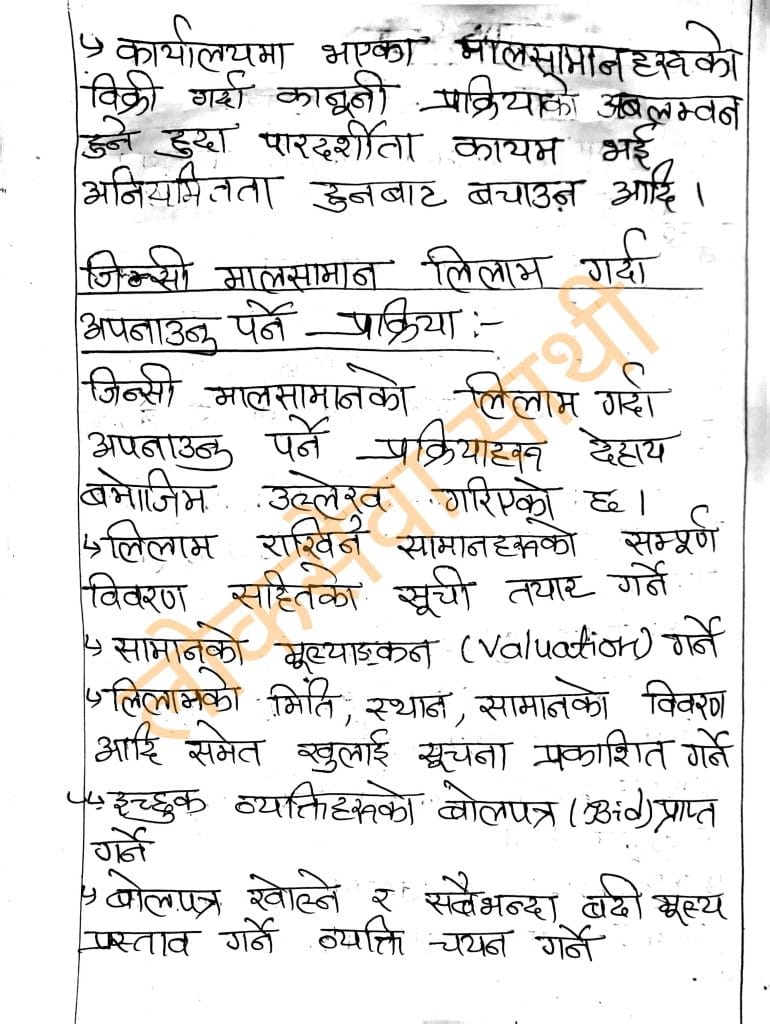 ↳ कार्यालयमा भएका मालसामानहरुको
विक्री गर्दा कानूनी प्रक्रियाको अबलम्वन
हुने हुदा पारदर्शीता कायम भई
अनियमितता हुनबाट बचाउन आदि ।
जिन्सी मालसामान लिलाम गर्दा
अपनाउनु पर्ने प्रक्रिया :-
जिन्सी मालसामानको लिलाम गर्दा
अपनाउनु पर्ने प्रक्रियाहरु देहाय
बमोजिम उल्लेख गरिएको छ ।
↳ लिलाम राखिने सामानहरुको सम्पूर्ण
विवरण सहितको सूची तयार गर्ने
↳ सामानको मूल्याङ्कन (Valuation) गर्ने
↳ लिलामको मिति, स्थान, सामानको विवरण
आदि समेत खुलाई सूचना प्रकाशित गर्ने
↳ इच्छुक व्यक्तिहरुको बोलपत्र (Bid) प्राप्त
गर्ने
↳ बोलपत्र खोल्ने र सबैभन्दा बढी मूल्य
प्रस्ताव गर्ने व्यक्ति चयन गर्ने
लोकसेवा साथी